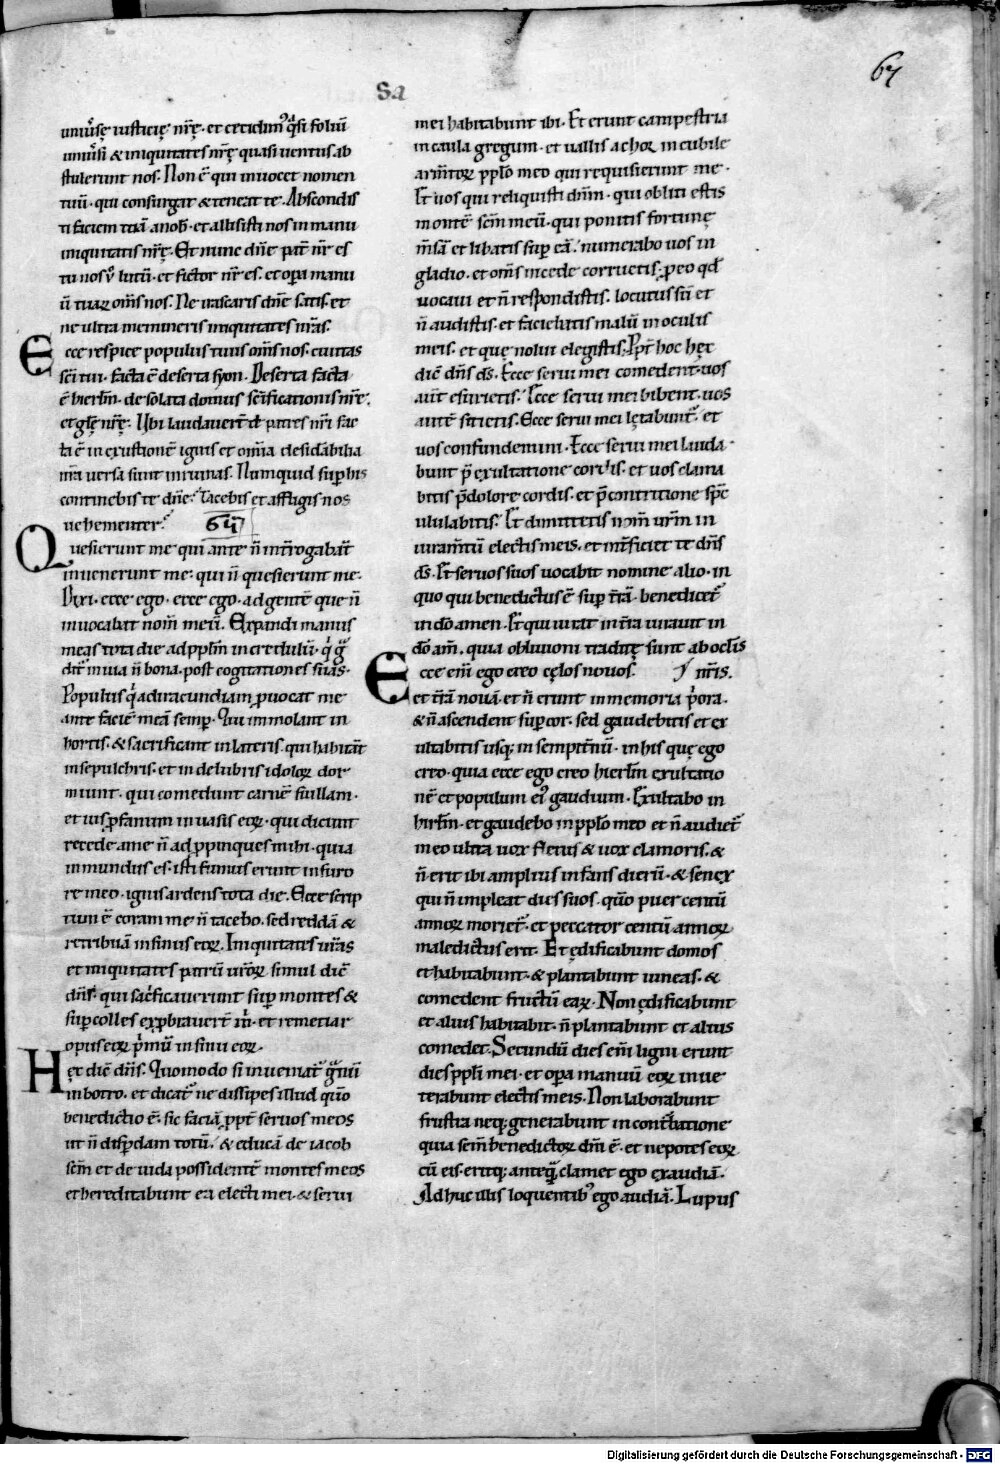 67
Sa
uniůsę iusticię nr̄ę. et cecidim᷒ q̊si foliū
uniůsi & iniquitates nr̄ę quasi uentus ab
stulerunt nos. Non ē qui inuocet nomen
tuū. qui consurgat & teneat te. Abscondis
ti faciem tuā anob᷒. et allisisti nos in manu
iniquitatis nr̄ę. Et nunc dn̄e pat̄ nr̄ es
tu nos v̊ lutū. et fictor nr̄ es. et oꝑa manu
ū tuaꝝ om̄s nos. Ne irascaris dn̄e satis. et
ne ultra memineris iniquitates nr̄as.
Ecce respice populus tuus om̄s nos. ciuitas
sc̄i tui. facta ē deserta syon. Deserta facta
ē hierlm̄. desolata domus sc̄ificationis nr̄ę.
et glę nr̄ę. Ubi laudauer̄t te patres nr̄i fac
ta ē in exustionē ignis et om̄ia desidābilia
nr̄a uersa sunt in ruinas. Numquid suꝑ his
continebis te dn̄e. tacebis et affligis nos
uehementer.
Quesierunt me qui ante n̄ int̄rogabāt
inuenerunt me. qui n̄ quesierunt me.
Dixi. ecce ego. ecce ego. ad gentē que n̄
inuocabat nom̄ meū. Expandi manus
meas tota die ad ppl̄m incredulū. q̇ g̊
dit᷑ in uia n̄ bona. post cogitationes suas.
Populus q̇ ad iracundiam ꝓuocat me
ante faciē meā semꝑ. Qui immolant in
hortis. & sacrificant in lateris. qui habitāt
in sepulchris. et in delubris idoloꝝ dor
miunt. qui comedunt carnē suillam.
et ius ꝓfanum in uasis eoꝝ. qui dicunt
recede a me n̄ adꝓpinques mihi. quia
inmundus es. isti fumus erunt in furo
re meo. ignis ardens tota die. Ecce scrip
tum ē coram me n̄ tacebo. sed reddā &
retribuā in sinus eoꝝ. Iniquitates ur̄as
et iniquitates patrū ur̄oꝝ simul dicē
dn̄s. qui sac̊ficauerunt suꝑ montes &
suꝑ colles exꝓbrauer̄t m̊. et remetiar
opus eoꝝ p̊mū in sinu eoꝝ.
Hęc dic̄ dn̄s. Quomodo si inueniat᷑ g̊nū
in botro. et dicat᷑ ne dissipes illud qm̄o
benedictio ē. sic faciā ꝓpt̄ seruos meos
ut n̄ disꝑdam totū. & educā de iacob
sem̄ et de iuda possidentē montes meos
et hereditabunt eā electi mei. & serui
mei habitabunt ibi. Et erunt campestria
in caula gregum. et uallis achor in cubile
arm̄toꝝ ppl̄o meo qui requisierunt me.
Et uos qui reliquisti dn̄m. qui obliti estis
montē sc̄m meū. qui ponitis fortunę
m̄sā et libatis suꝑ eā. numerabo uos in
gladio. et om̄s in cede corruetis. ꝓ eo qd̄
uocaui et n̄ respondistis. locutus sū et
n̄ audistis. et faciebatis malū in oculis
meis. et quę nolui elegistis. Ppt̄ hoc hęc
dic̄ dn̄s ds̄. Ecce serui mei comedent. uos
aut̄ esurietis. Ecce serui mei bibent. uos
autē sitietis. Ecce serui mei lętabunt᷑. et
uos confundemini. Ecce serui mei lauda
bunt p̄ exultatione cordis. et uos clama
bitis p̄ dolore cordis. et p̄ contritione sp̄c
ululabitis. Et dimittetis nom̄ ur̄m in
iuram̄tū electis meis. et int̄ficiet te dn̄s
ds̄. Et seruos suos uocabit nomine alio. in
quo qui benedictus ē suꝑ t̄rā. benedicet᷑
in dō amen. Et qui iurat in t̄ra iurauit in
dō am̄. quia obliuioni traditę sunt ab ocl̄is
Ecce em̄ ego creo cęlos nouos. nr̄is.
et t̄rā nouā. et n̄ erunt in memoria p̊ora.
& n̄ ascendent suꝑ cor. sed gaudebitis et ex
ultabitis usq; in sempit̄nū. in his quę ego
creo. quia ecce ego creo hierlm̄ exultatio
nē et populum ei᷒ gaudium. Exultabo in
hirlm̄. et gaudebo in ppl̄o meo et n̄ audiet᷑
in eo ultra uox fletus & uox clamoris. &
n̄ erit ibi amplius infans dierū. & senex
qui n̄ impleat dies suos. qm̄o puer centū
annoꝝ moriet᷑. et peccator centū annoꝝ
maledictus erit. Et ędificabunt domos
et habitabunt. & plantabunt uineas. &
comedent fructū eaꝝ. Non ędificabunt
et alius habitabit. n̄ plantabunt et alius
comedet. Secundū dies em̄ ligni erunt
dies ppl̄i mei. et oꝑa manuū eoꝝ inue
terabunt electis meis. Non laborabunt
frustra neq; generabunt in conturbatione
quia sem̄ benedictoꝝ dn̄i ē. et nepotes eoꝝ
cū eis. eritq; anteq̊ clament ego exaudiā.
Adhuc illis loquentib᷒ ego audiā. Lupus
Digitalisierung gefördert durch die Deutsche Forschungsgemeinschaft - DFG